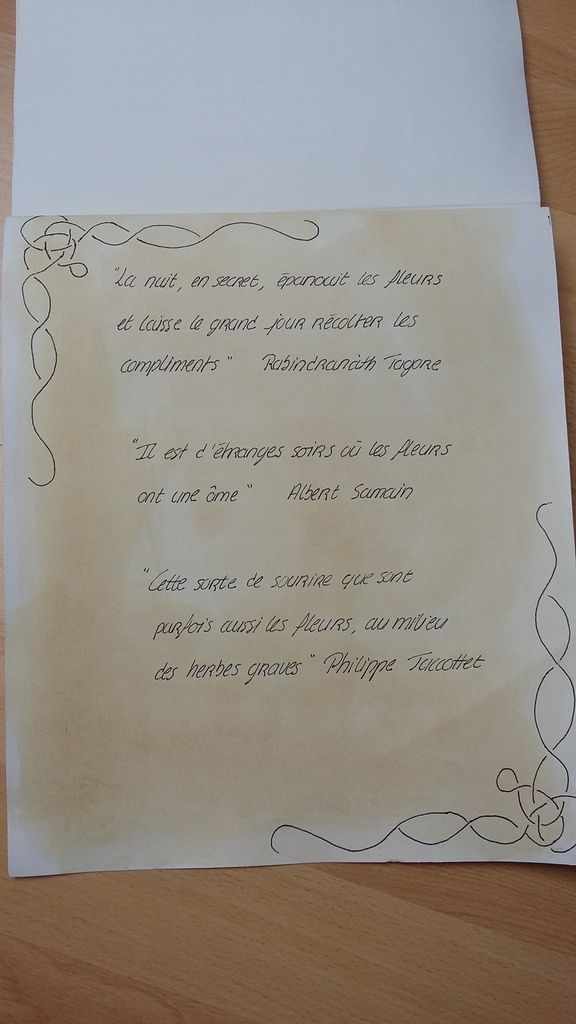 "La nuit, en secret, épanouit les fleurs
et laisse le grand jour récolter les
compliments" Rabindranàth Tagore
"Il est d'étranges soirs où les fleurs
ont une âme" Albert Samain
"Cette sorte de sourire que sont
parfois aussi les fleurs, au milieu
des herbes graves" Philippe Jaccottet